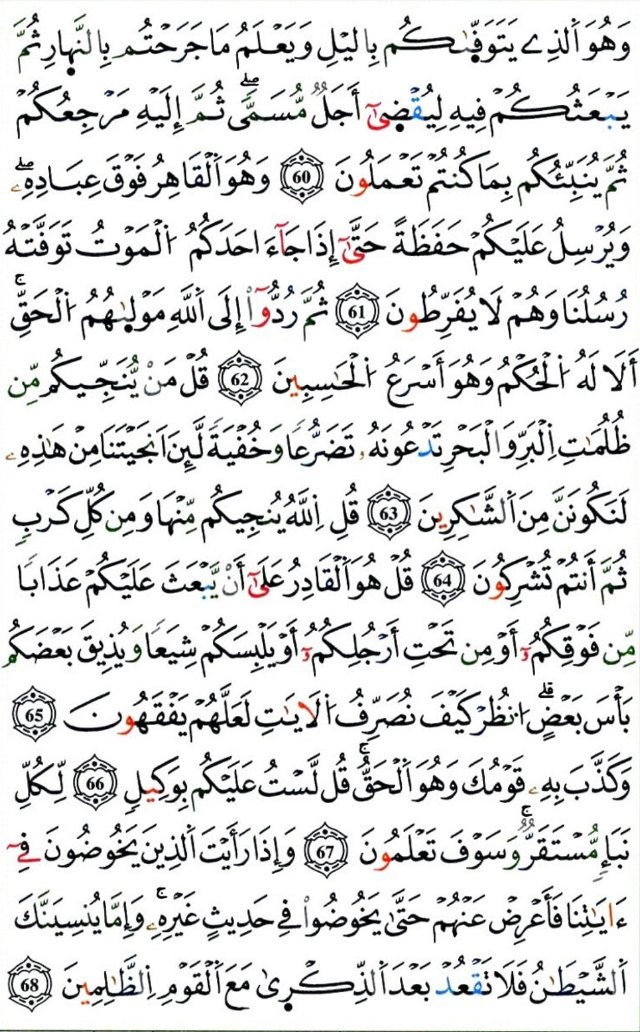 وَهُوَ اَ۬لذِے يَتَوَفّ۪يٰكُم بِاليْلِ وَيَعْلَمُ مَا جَرَحْتُم بِالنَّه۪ارِ ثُمَّ
يَبْعَثُكُمْ فِيهِ لِيُقْضَىٰٓ أَجَلٞ مُّسَمّيٗۖ ثُمَّ إِلَيْهِ مَرْجِعُكُمْ
ثُمَّ يُنَبِّئُكُم بِمَا كُنتُمْ تَعْمَلُونَ 60 وَهُوَ اَ۬لْقَاهِرُ فَوْقَ عِبَادِهِۦۖ
وَيُرْسِلُ عَلَيْكُمْ حَفَظَةً حَتَّىٰٓ إِذَا جَآءَ احَدَكُمُ اُ۬لْمَوْتُ تَوَفَّتْهُ
رُسُلُنَا وَهُمْ لَا يُفَرِّطُونَ 61 ثُمَّ رُدُّوٓاْ إِلَى اَ۬للَّهِ مَوْل۪يٰهُمُ اُ۬لْحَقِّۚ
أَلَا لَهُ اُ۬لْحُكْمُ وَهُوَ أَسْرَعُ اُ۬لْحَٰسِبِينَ 62 قُلْ مَنْ يُّنَجِّيكُم مِّن
ظُلُمَٰتِ اِ۬لْبَرِّ وَالْبَحْرِ تَدْعُونَهُۥ تَضَرُّعاٗ وَخُفْيَةٗ لَّئِنَ اَنجَيْتَنَا مِنْ هَٰذِهِۦ
لَنَكُونَنَّ مِنَ اَ۬لشَّٰكِرِينَ 63 قُلِ اِ۬للَّهُ يُنجِيكُم مِّنْهَا وَمِن كُلِّ كَرْبٖ
ثُمَّ أَنتُمْ تُشْرِكُونَ 64 قُلْ هُوَ اَ۬لْقَادِرُ عَلَىٰٓ أَنْ يَّبْعَثَ عَلَيْكُمْ عَذَاباٗ
مِّن فَوْقِكُمُۥٓ أَوْ مِن تَحْتِ أَرْجُلِكُمُۥٓ أَوْ يَلْبِسَكُمْ شِيَعاٗ وَيُذِيقَ بَعْضَكُم
بَأْسَ بَعْضٍۖ اُ۟نظُرْ كَيْفَ نُصَرِّفُ اُ۬لَايَٰتِ لَعَلَّهُمْ يَفْقَهُونَ 65
وَكَذَّبَ بِهِۦ قَوْمُكَ وَهُوَ اَ۬لْحَقُّۚ قُل لَّسْتُ عَلَيْكُم بِوَكِيلٖ 66 لِّكُلِّ
نَبَإٖ مُّسْتَقَرّٞۚ وَسَوْفَ تَعْلَمُونَ 67 وَإِذَا رَأَيْتَ اَ۬لذِينَ يَخُوضُونَ فِےٓ
ءَايَٰتِنَا فَأَعْرِضْ عَنْهُمْ حَتَّىٰ يَخُوضُواْ فِے حَدِيثٍ غَيْرِهِۦۚ وَإِمَّا يُنسِيَنَّكَ
اَ۬لشَّيْطَٰنُ فَلَا تَقْعُدْ بَعْدَ اَ۬لذِّكْر۪يٰ مَعَ اَ۬لْقَوْمِ اِ۬لظَّٰلِمِينَ 68